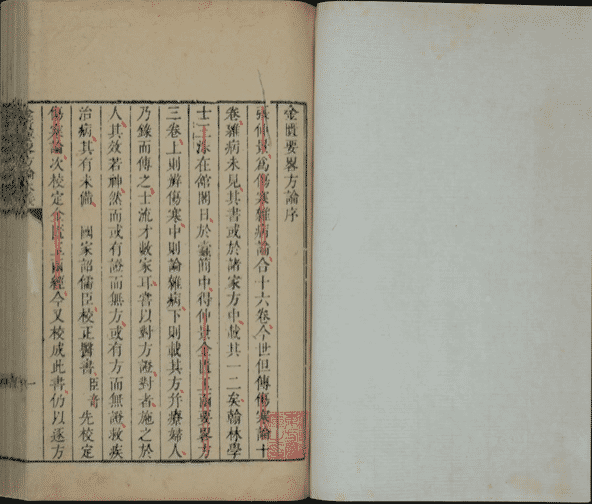 金匱要畧方論序
張仲景為傷寒雜病論合十六卷今世但傳傷寒論十
卷雜病未見其書或於諸家方中載其一二矣翰林學
士王洙在館閣日於蠧簡中得仲景金匱玉函要畧方
三卷上則辨傷寒中則論雜病下則載其方并療婦人
乃錄而傳之士流才數家耳嘗以對方證對者施之於
人其效若神然而或有證而無方或有方而無證救疾
治病其有未備 國家詔儒臣校正醫書臣奇先校定
傷寒論次校定金匱玉函經今又校成此書仍以逐方